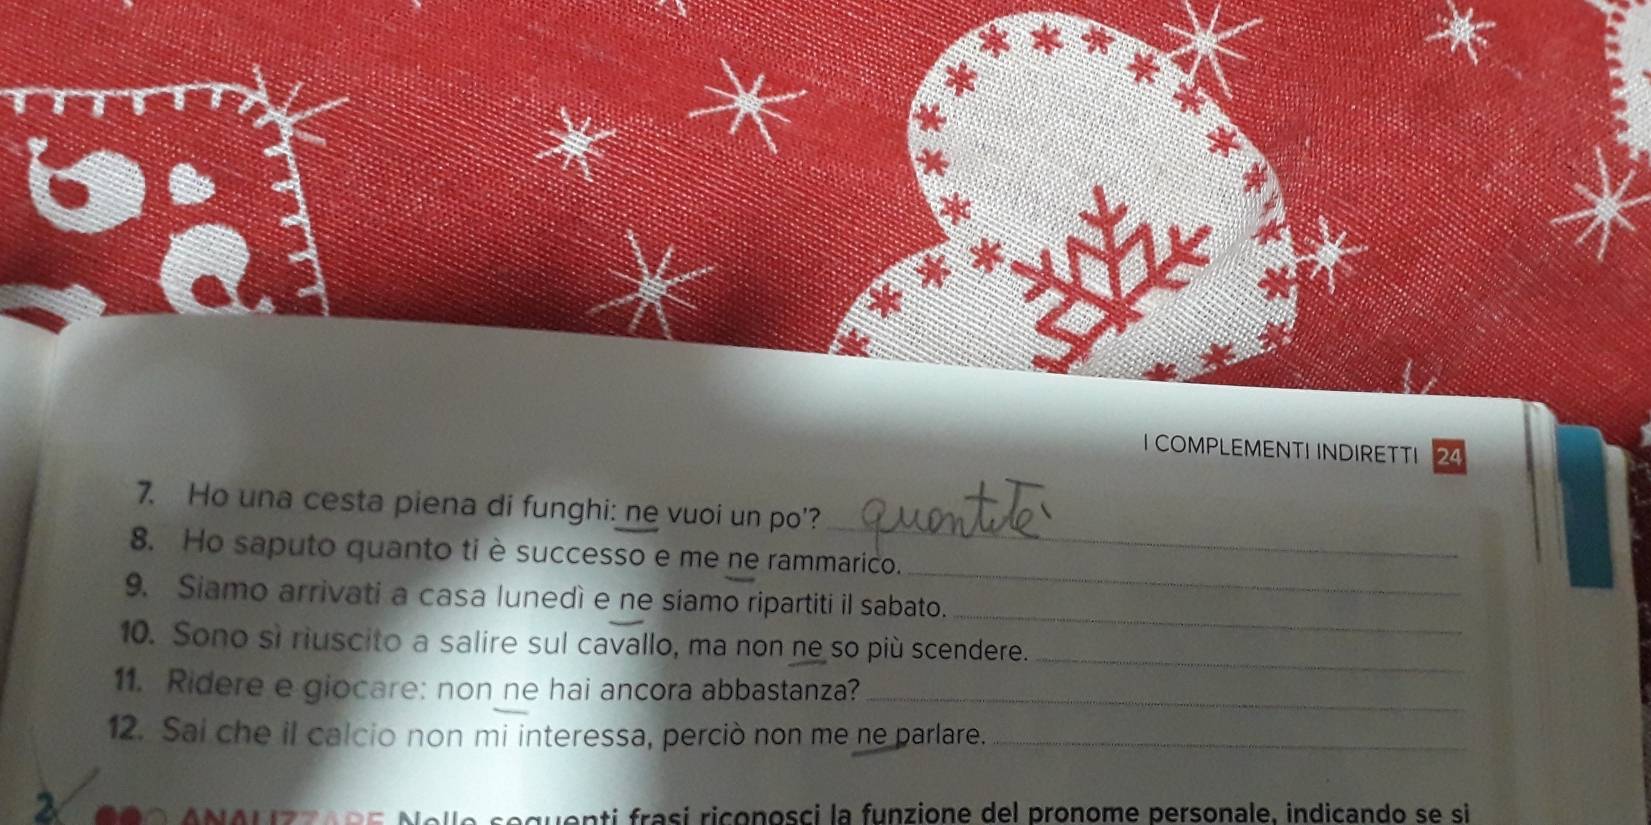 I COMPLEMENTI INDIRETTI 24
7. Ho una cesta piena di funghi: ne vuoi un po'? quantità
8. Ho saputo quanto ti è successo e me ne rammarico.
9. Siamo arrivati a casa lunedì e ne siamo ripartiti il sabato.
10. Sono sì riuscito a salire sul cavallo, ma non ne so più scendere.
11. Ridere e giocare: non ne hai ancora abbastanza?
12. Sai che il calcio non mi interessa, perciò non me ne parlare.
2 ANALIZZARE Nelle seguenti frasi riconosci la funzione del pronome personale, indicando se si